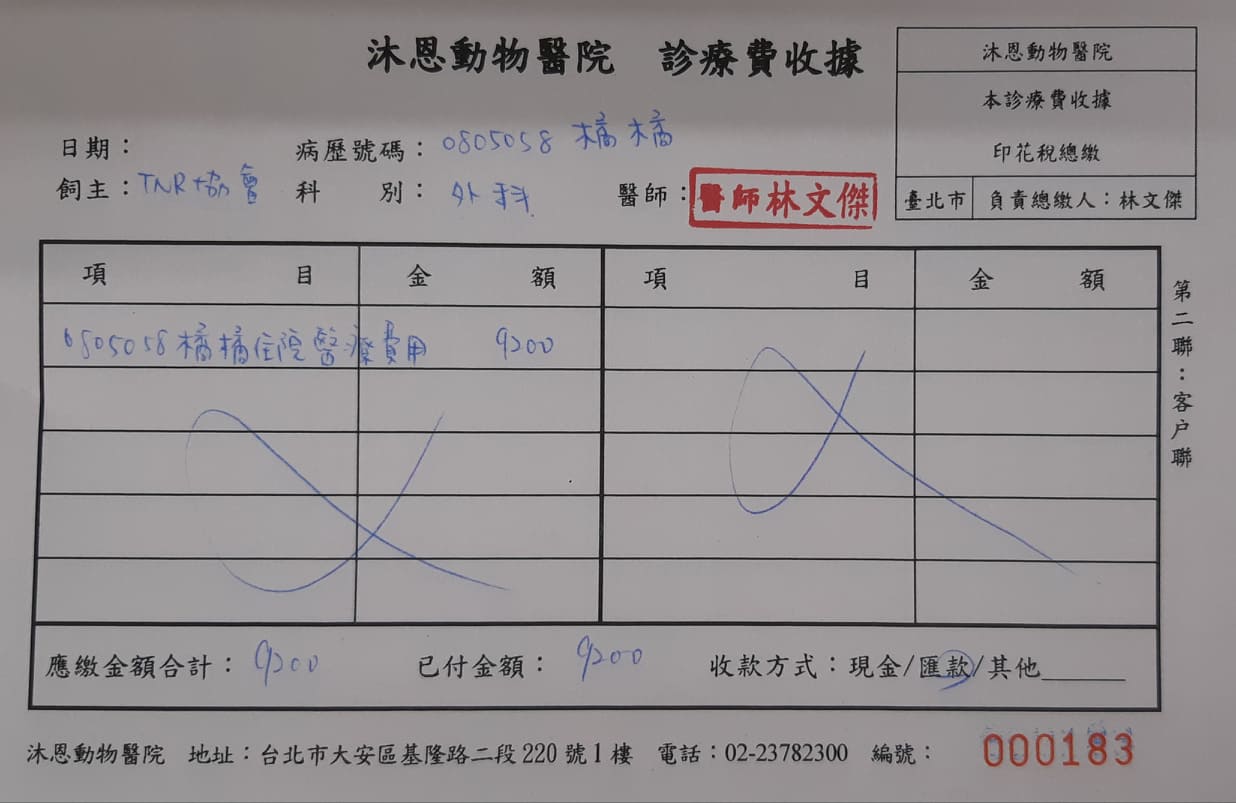 沐恩動物醫院 診療費收據
沐恩動物醫院
本診療費收據
印花稅總繳
臺北市 負責總繳人：林文傑
日期： 病歷號碼：0805058 橘橘
飼主：TNR協會 科別：外科 醫師：醫師林文傑
項目 金額 項目 金額
0805058橘橘住院醫療費用 9200
應繳金額合計：9200 已付金額：9200 收款方式：現金/匯款/其他______
第二聯：客戶聯
沐恩動物醫院 地址：台北市大安區基隆路二段220號1樓 電話：02-23782300 編號：000183